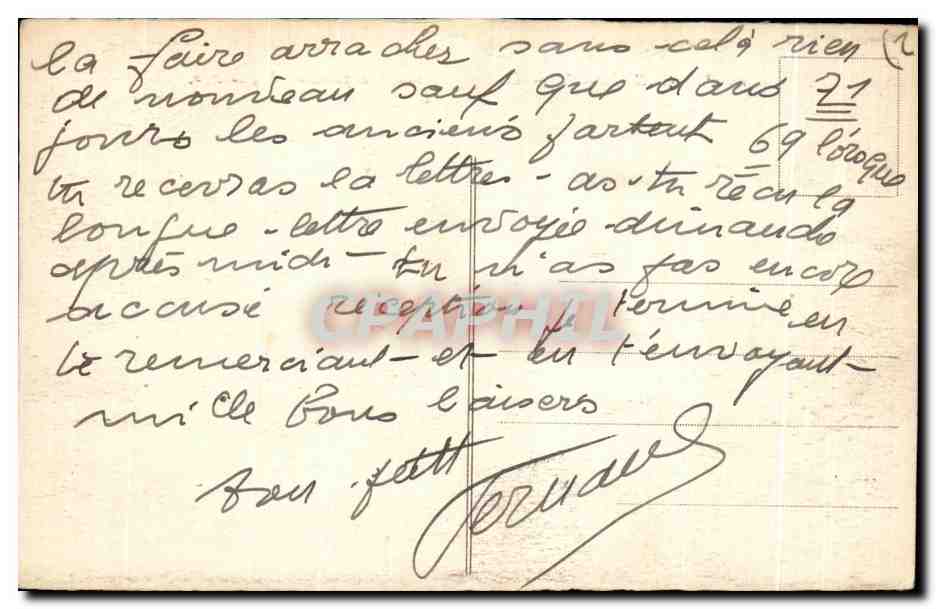 la faire arracher sans celà rien (2
de nouveau sauf que dans 71
jours les anciens partent 69 l'orsque
tu recevras la lettres - as-tu récu la
longue lettre envoyée dimande
après midi - tu m'as pas encore
accusé réception je termine en
te remerciant et en t'envoyant
mille bons baisers
ton petit Fernand
CPAPHIL